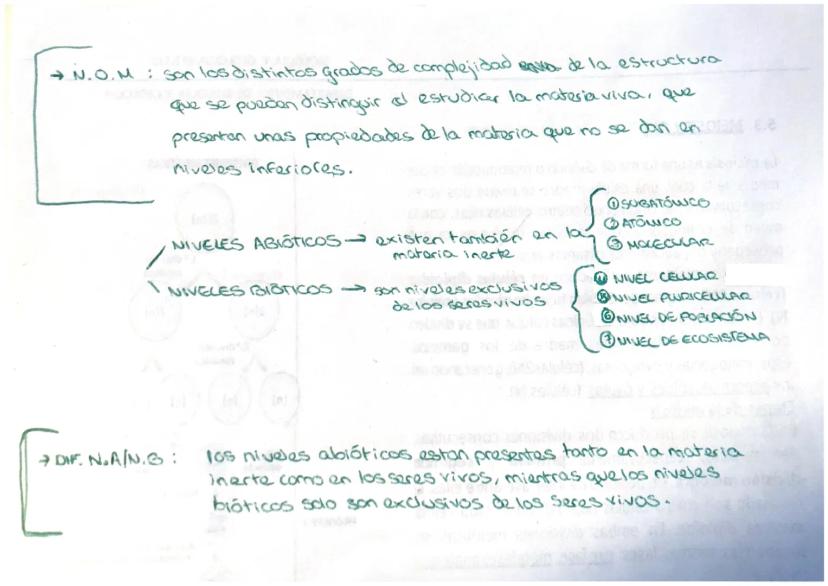 → N.O.M : son los distintos grados de complejidad de la estructura
que se puedan distinguir al estudiar la materia viva, que
presentan unas propiedades de la materia que no se dan en
niveles inferiores.
NIVELES ABIÓTICOS → existen también en la
materia inerte
① SUBATÓMICO
② ATÓMICO
③ MOLECULAR
NIVELES BIÓTICOS → son niveles exclusivos
de los seres vivos
④ NIVEL CELULAR
⑤ NIVEL PLURICELULAR
⑥ NIVEL DE POBLACIÓN
⑦ NIVEL DE ECOSISTEMA
→ DIF. N.A/N.B : los niveles abióticos estan presentes tanto en la materia
inerte como en los seres vivos, mientras que los niveles
bióticos solo son exclusivos de los seres vivos.